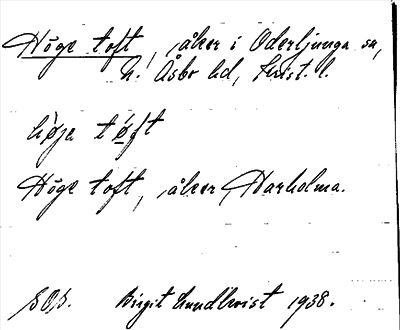 Höge toft, åker i Oderljunga sn,
N. Åsbo hd, Krist. l.
høja tøft
Höge toft, åker Harholma.
Birgit Lundkvist 1938.